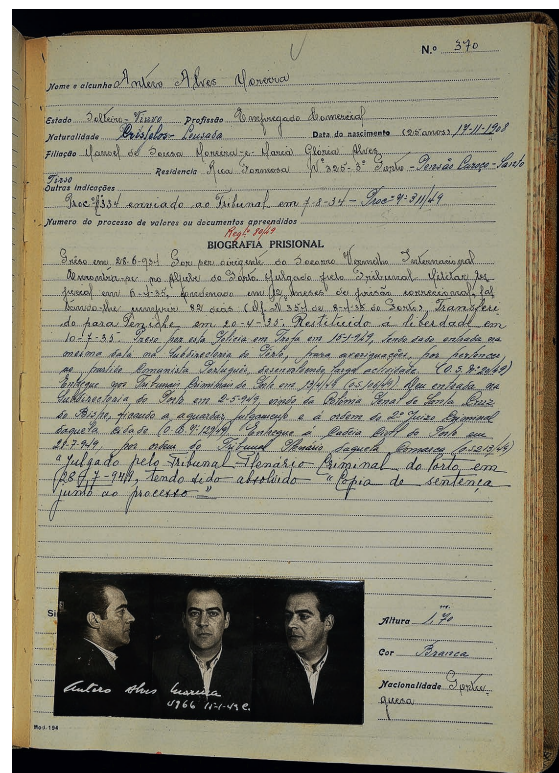 N.º 370
Nome e alcunha Antero Alves Moreira
Estado Solteiro - Viuvo Profissão Empregado Comercial
Naturalidade Cristelos - Lousada Data do nascimento (25 anos) 17-11-1908
Filiação Manoel de Sousa Moreira e Maria Glória Alves
Residencia Rua Formosa Nº 325-3º Porto - Pensão Santo
Tirso
Outras indicações
Procº 334 enviado ao Tribunal em 7-8-34 - Procº nº 311/49
Numero do processo de valores ou documentos apreendidos
Regtº 80/49
BIOGRAFIA PRISIONAL
Preso em 28-6-934 Por ser dirigente do Socorro Vermelho Internacional
Encontra-se no Aljube do Porto. Julgado pelo Tribunal Militar Es
pecial em 6-4-35, condenado em 12 meses de prisão correccional, fal
tando-lhe cumprir 82 dias (Of. nº 35-1 de 8-4-35 do Porto). Transferi
do para Peniche, em 20-4-935. Restituido á liberdade em
10-7-35. Preso por esta Policia em Trofa em 15-1-949, tendo dado entrada na
mesma data na Subdirectoria do Porto, para averiguações, por pertencer
ao partido Comunista Português, desenvolvendo larga actividade. (O.S. nº 20/49)
Entregue aos Tribunais Criminais do Porto em 13/4/49 (OS/106/49) Deu entrada na
Subdirectoria do Porto em 2-5-949, vindo da Colonia Penal de Santa Cruz
do Bispo, ficando a aguardar julgamento e á ordem do 2º Juizo Criminal
daquela cidade (O.S. nº 127/49) Entregue á Cadeia Civil do Porto em
28-7-949, por ordem do Tribunal Plenário daquela Comarca (O.S. 213/49)
"Julgado pelo Tribunal Plenário Criminal do Porto em
(28)-7-949, tendo sido absolvido - "Copia de sentença
junto ao processo"
Antero Alves Moreira
1966 15-1-49 C.
Altura 1,70
m.
Côr Branca
Nacionalidade Portu
guesa
Mod. 194